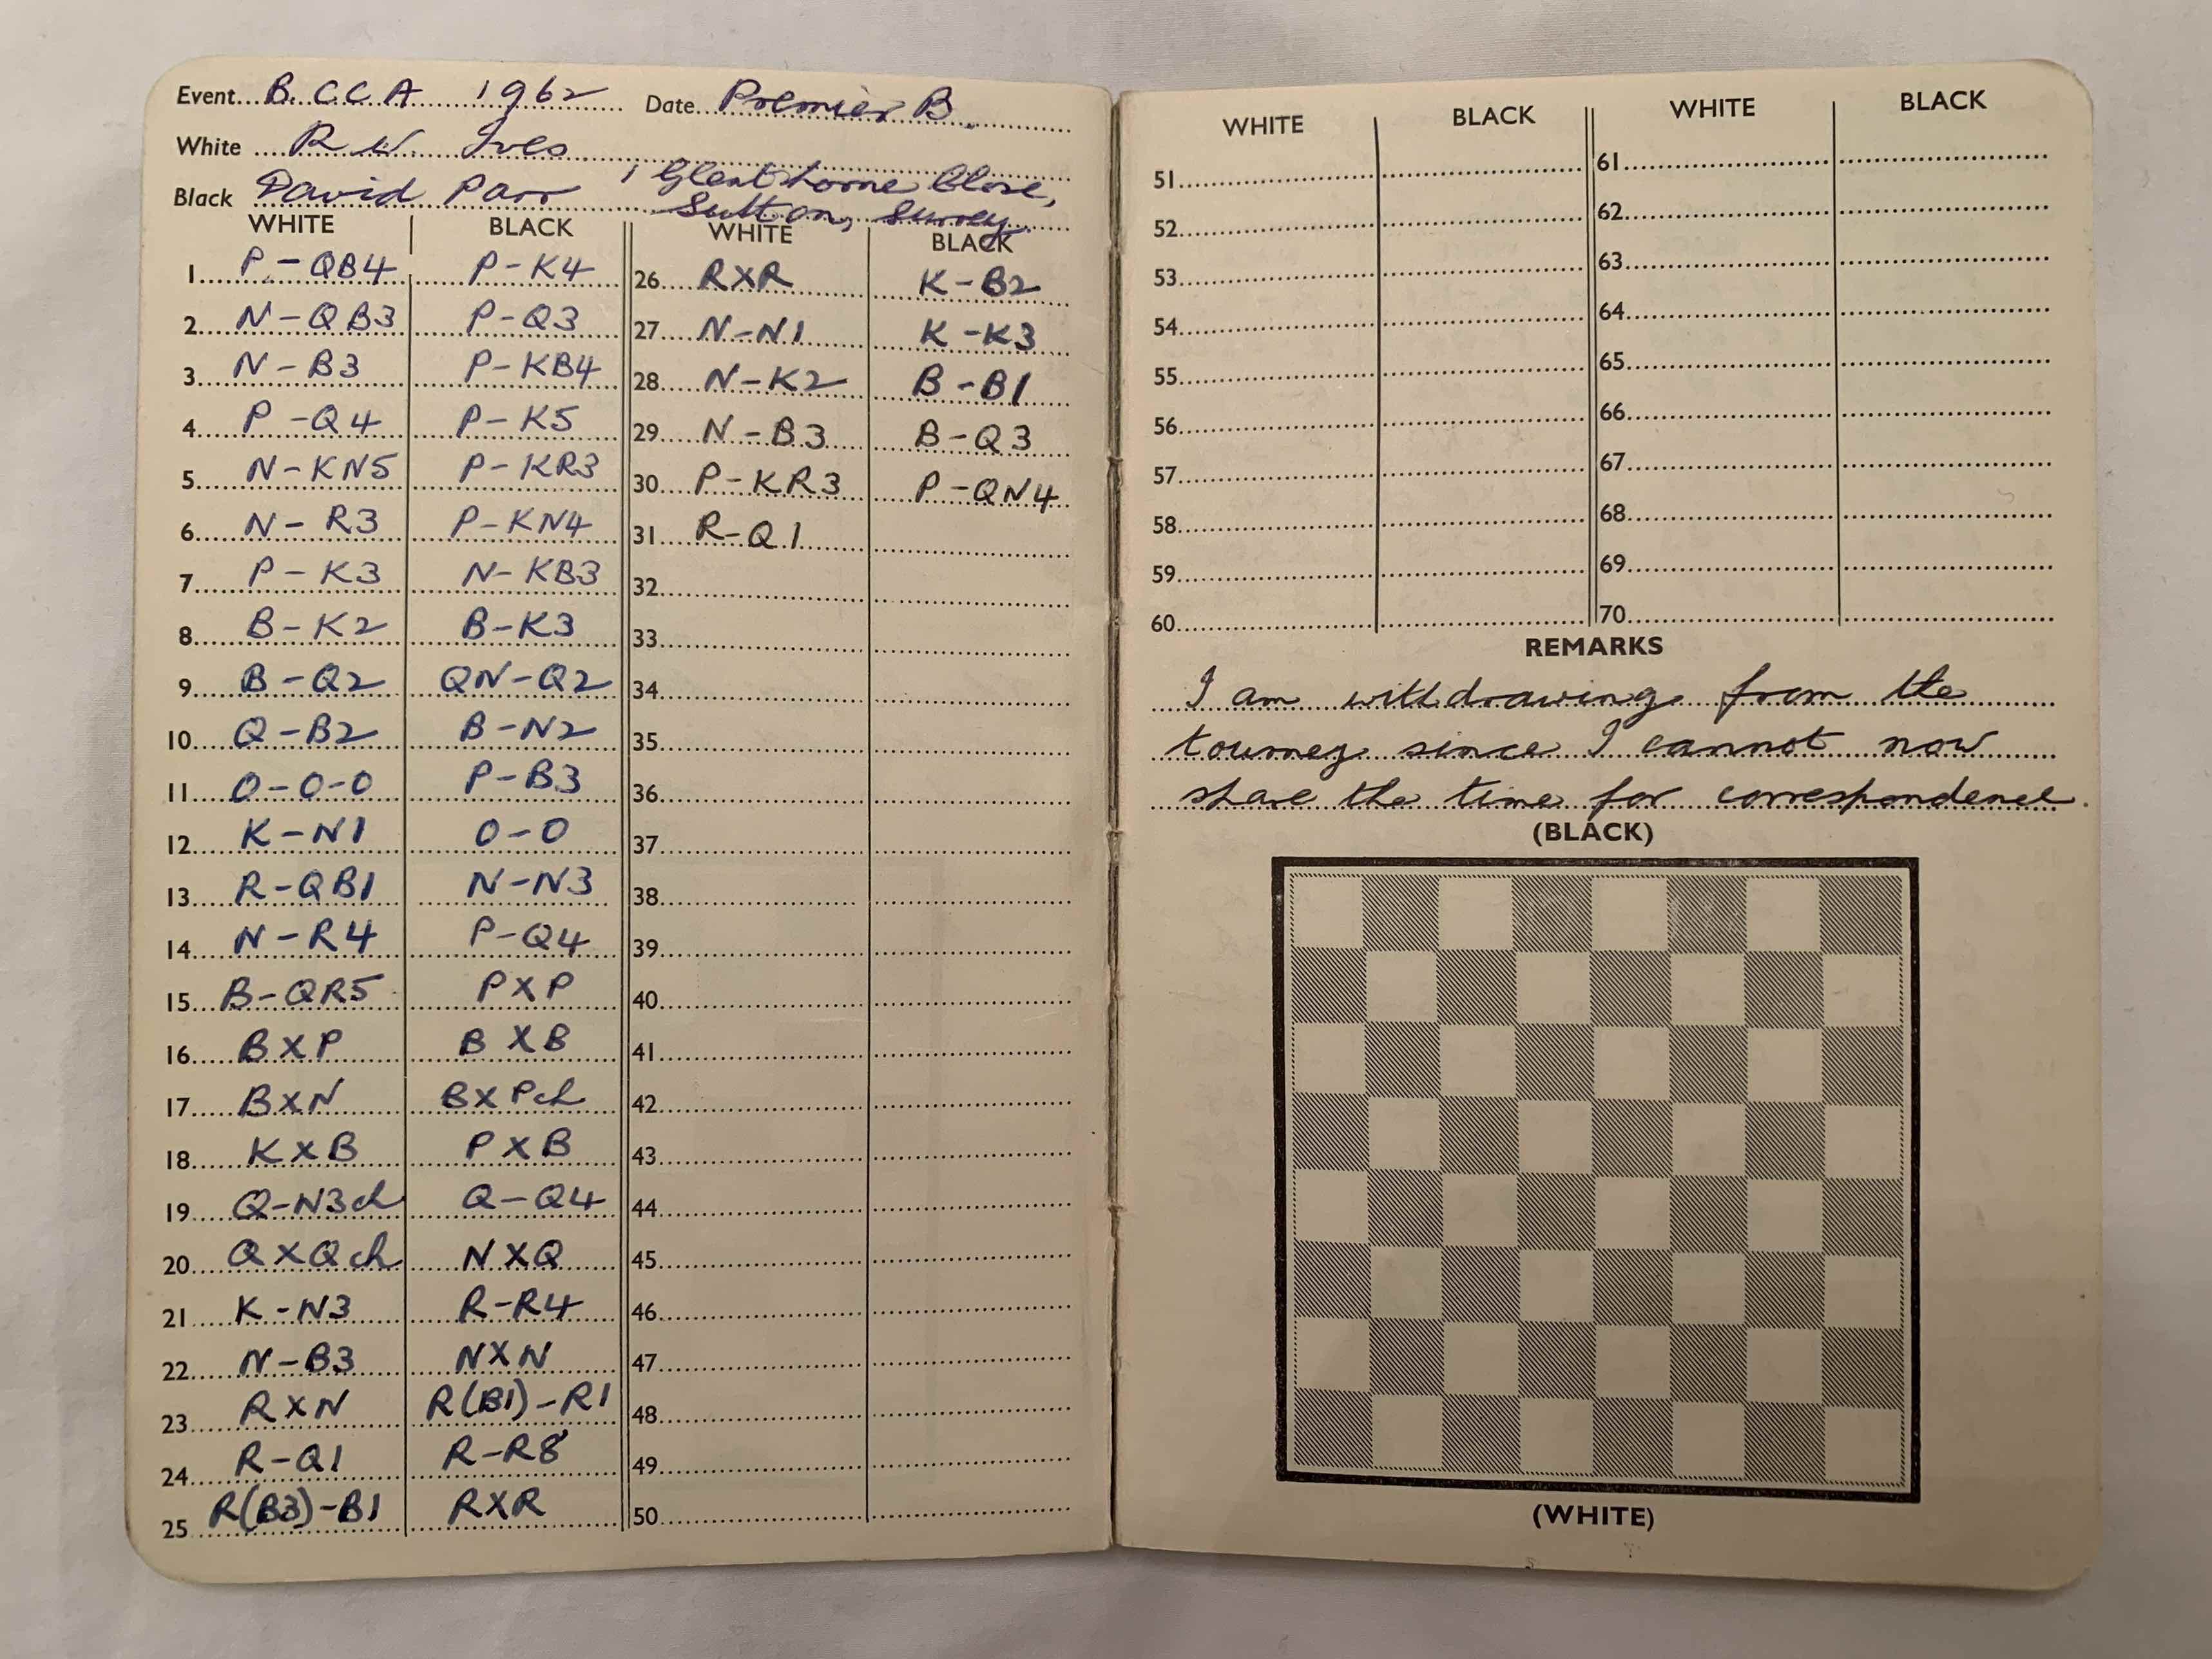 Event B.C.C.A 1962 Date Premier B.
White R W. Ives
Black David Parr 1 Glenthorne Close,
Sutton, Surrey
WHITE BLACK WHITE BLACK
1 P-QB4 P-K4
2 N-QB3 P-Q3
3 N-B3 P-KB4
4 P-Q4 P-K5
5 N-KN5 P-KR3
6 N-R3 P-KN4
7 P-K3 N-KB3
8 B-K2 B-K3
9 B-Q2 QN-Q2
10 Q-B2 B-N2
11 O-O-O P-B3
12 K-N1 O-O
13 R-QB1 N-N3
14 N-R4 P-Q4
15 B-QR5 PXP
16 BXP BXB
17 BXN BXPch
18 KXB PXB
19 Q-N3ch Q-Q4
20 QXQch NXQ
21 K-N3 R-R4
22 N-B3 NXN
23 RXN R(B1)-R1
24 R-Q1 R-R8
25 R(B3)-B1 RXR
26 RXR K-B2
27 N-N1 K-K3
28 N-K2 B-B1
29 N-B3 B-Q3
30 P-KR3 P-QN4
31 R-Q1
32
33
34
35
36
37
38
39
40
41
42
43
44
45
46
47
48
49
50
WHITE BLACK WHITE BLACK
51 61
52 62
53 63
54 64
55 65
56 66
57 67
58 68
59 69
60 70
REMARKS
I am withdrawing from the
tourney since I cannot now
spare the time for correspondence.
(BLACK)
(WHITE)